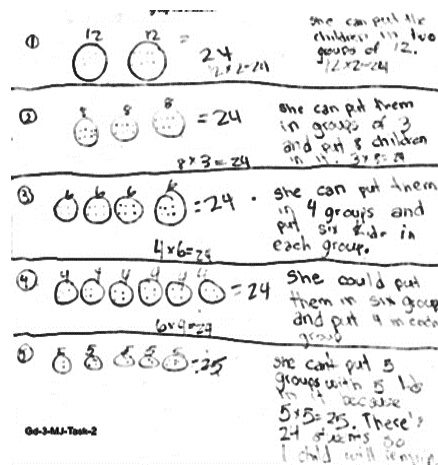 ① 12 12 = 24
12 x 2 = 24
she can put the
children in two
groups of 12.
12 x 2 = 24
② 8 8 8 = 24
8 x 3 = 24
she can put them
in groups of 3
and put 8 children
in it. 3 x 8 = 24
③ 6 6 6 6 = 24
4 x 6 = 24
she can put them
in 4 groups and
put six kids in
each group.
④ 4 4 4 4 4 4 = 24
6 x 4 = 24
She could put
them in six group
and put 4 in each
group
⑤ 5 5 5 5 5 = 25
she can't put 5
groups with 5 kids
in it because
5 x 5 = 25. There's
24 so
1 child will
Gd-3-MJ-Task-2